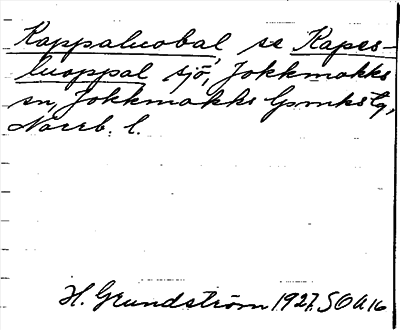 Kappaluobal, se Kapes-
luoppal sjö, Jokkmokks
sn, Jokkmokks lpmks tg,
Norrb. l.
H. Grundström 1927. SOA 16